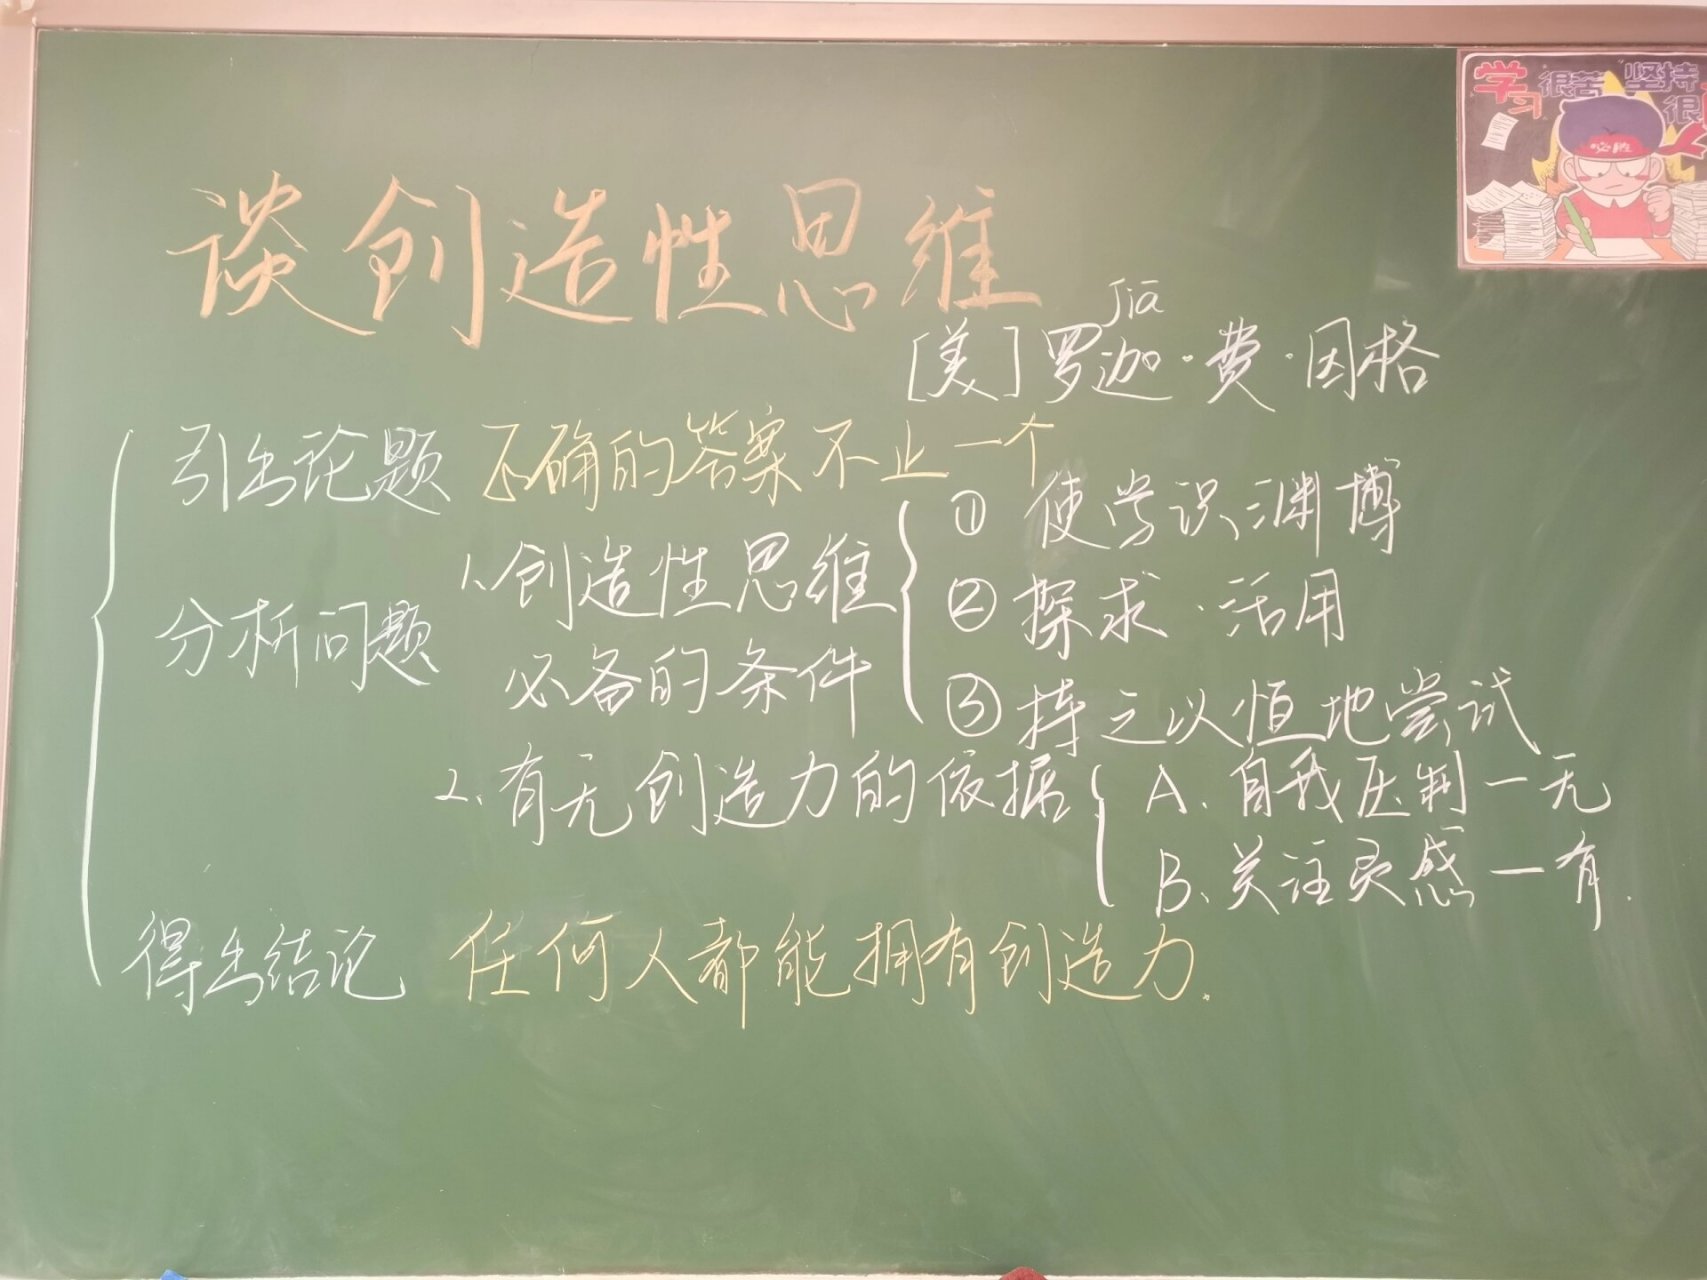 学习很苦 坚持很
必胜
谈创造性思维
jiā
[美]罗迦·费·因格
引出论题 正确的答案不止一个
① 使学识渊博
分析问题 1、创造性思维
必备的条件
② 探求·活用
③ 持之以恒地尝试
2、有无创造力的依据 A、自我压制—无
B、关注灵感—有.
得出结论 任何人都能拥有创造力.